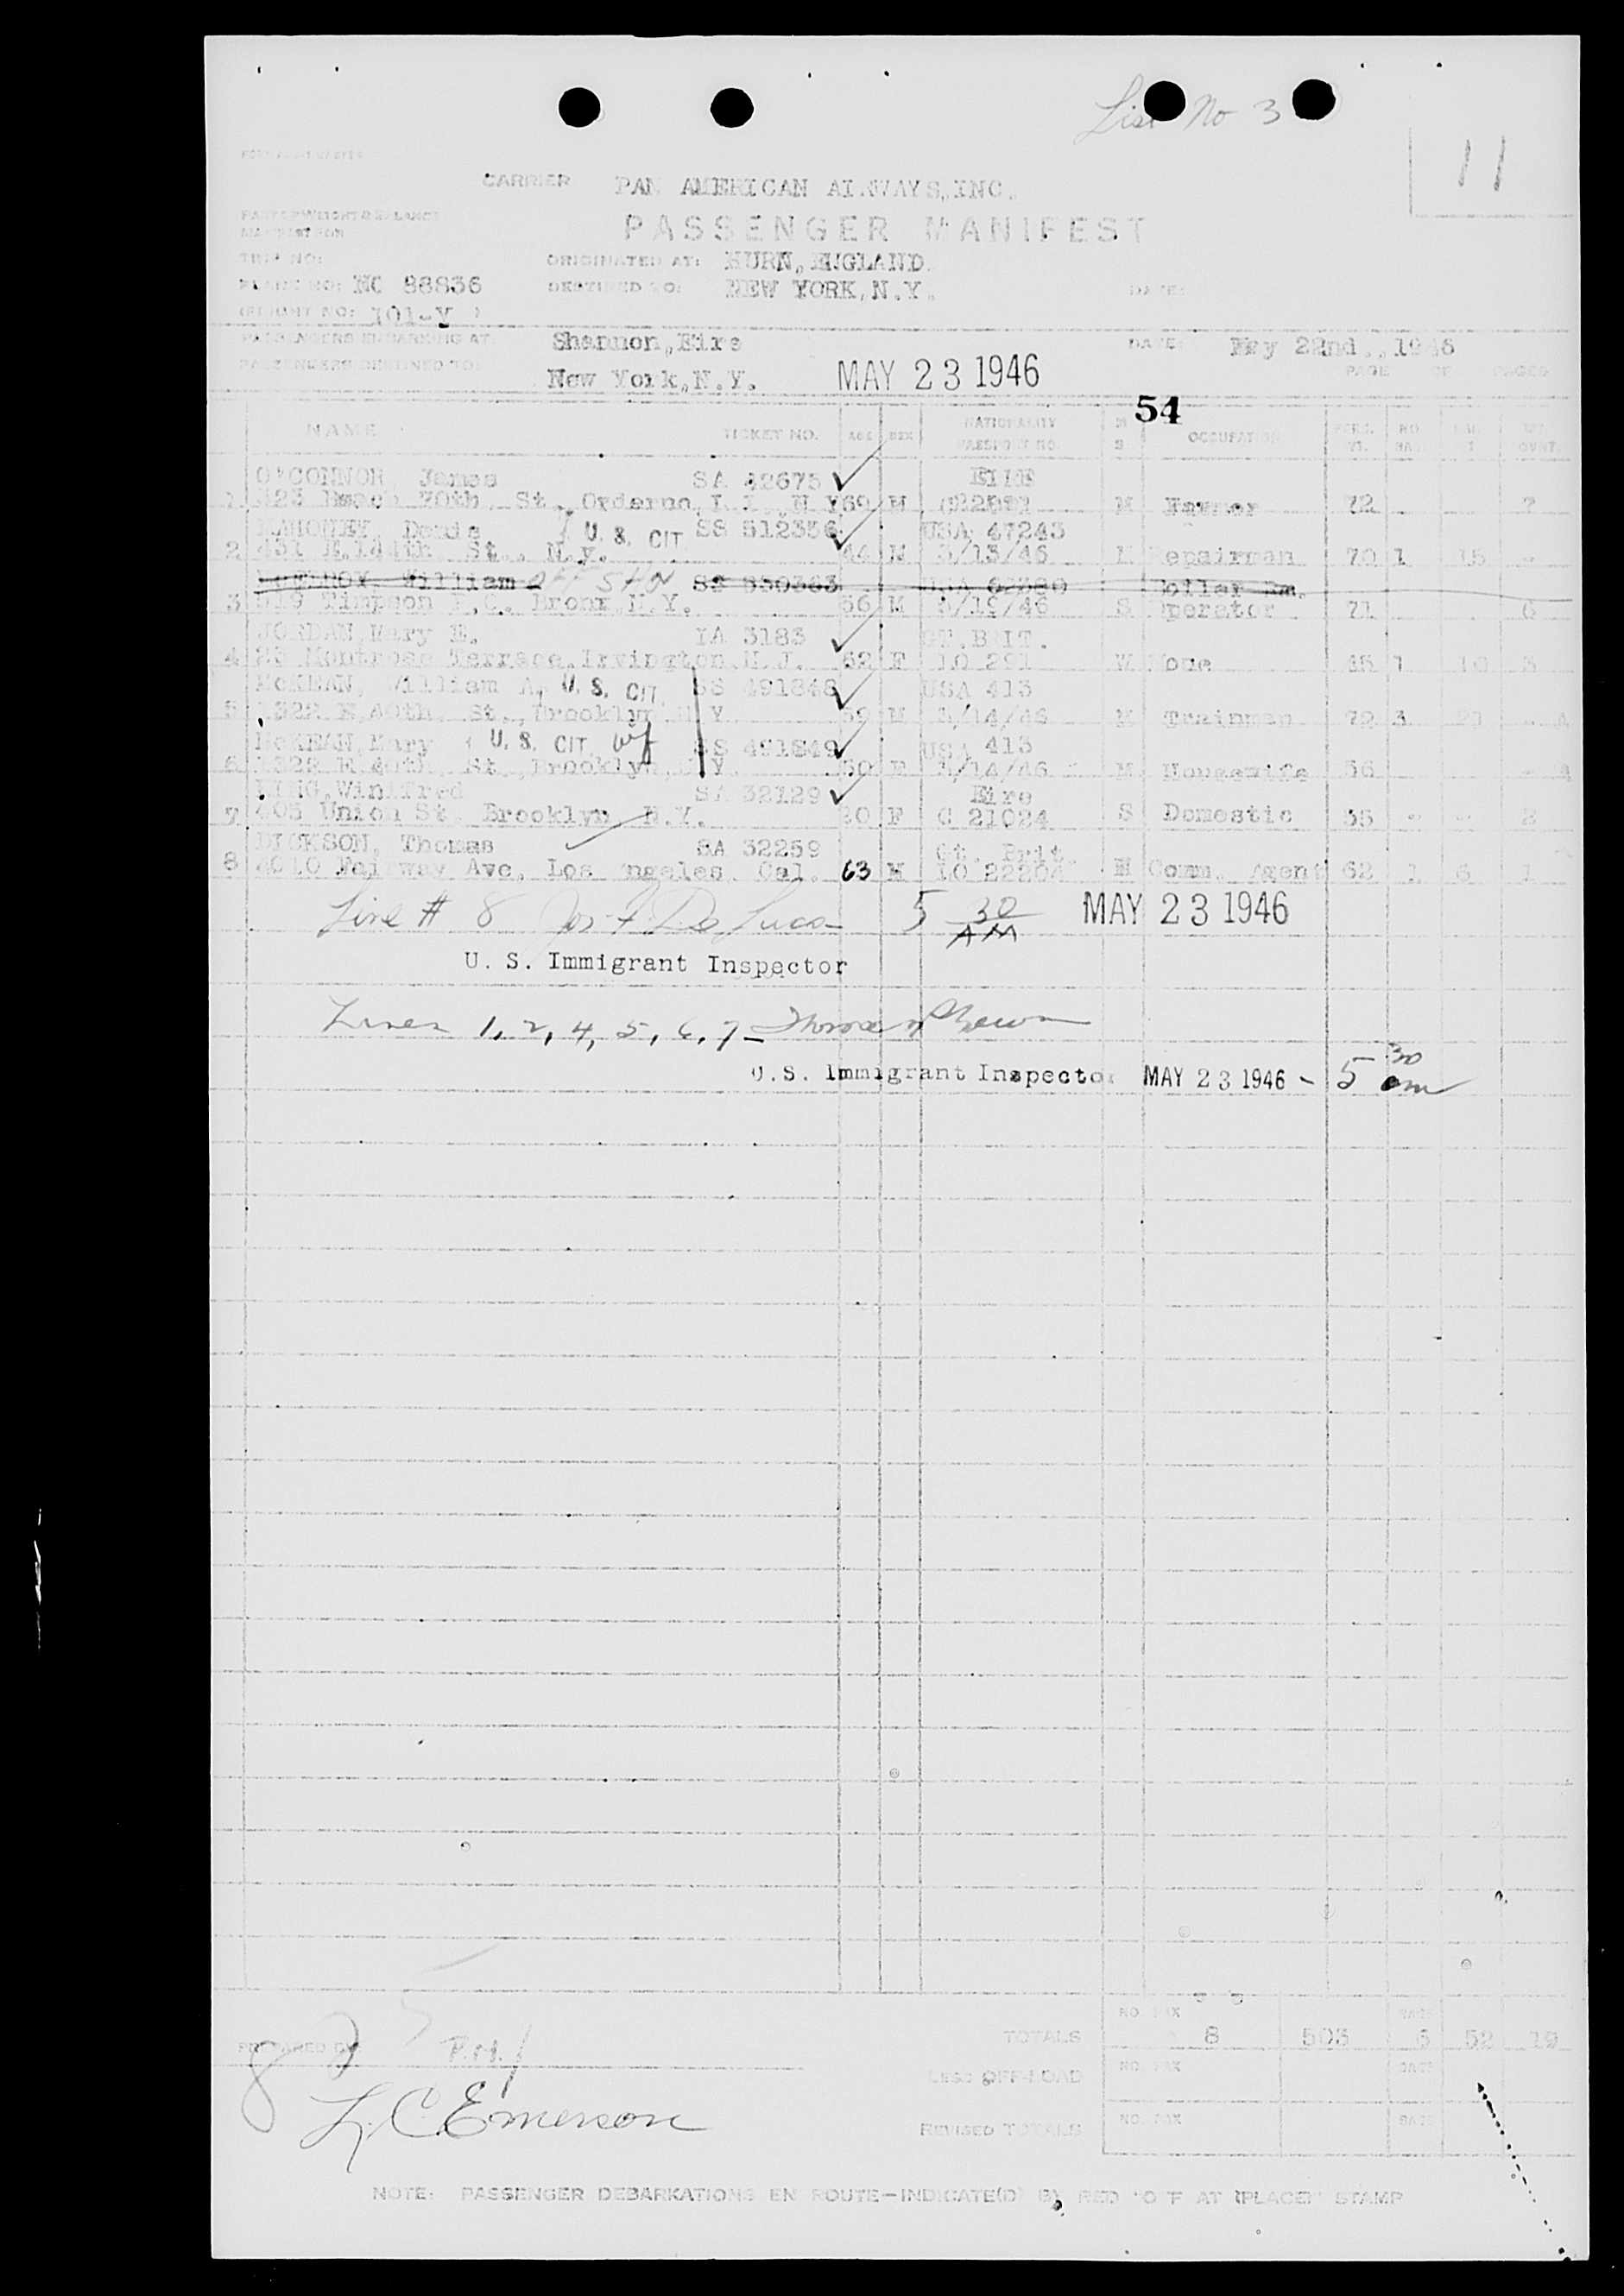 List No 3
11
CARRIER PAN AMERICAN AIRWAYS, INC.
PASSENGER MANIFEST
TRIP NO:
ORIGINATED AT: HURN, ENGLAND
PLANE NO: NC 88836 DESTINED TO: NEW YORK, N.Y. DATE:
(FLIGHT NO: 101-Y )
PASSENGERS EMBARKING AT Shannon, Eire DATE: May 22nd., 1946
PASSENGERS DESTINED TO: New York, N.Y. MAY 23 1946 PAGE OF PAGES
54
NAME TICKET NO. AGE SEX NATIONALITY PASSPORT NO. M S OCCUPATION
O'CONNOR James SA 42675 Eire
1 St., N Y 69 M M Farmer 72 7
U. S. CIT SS 512336 USA 47243
2 431 E. 144th St., N.Y. 44 M 3/13/46 M Repairman 70 1 15 -
William OFF SHN SS 550363 USA Boiler Rm.
3 519 Timpson Bronx N.Y. 56 M 3/19/46 S Operator 71 6
JORDAN, Mary E. IA 3183 GT. BRIT.
4 Montrose Terrace, Irvington N.J. 52 F LO 291 W None 1 10
McKEAN, William A. U. S. CIT. SS 491848 USA 413
5 1322 E 40th. St., Brooklyn N Y 59 M 3/14/46 M Trainman 72 3 4
McKEAN, Mary U. S. CIT. Wf SS 491849 USA 413
6 1322 E 40th. St., Brooklyn, N Y 50 F 3/14/46 M Housewife 56 4
Winifred SA 32129 Eire
7 405 Union St. Brooklyn N.Y. F C 21024 S Domestic - -
DICKSON, Thomas SA 32259 Gt. Brit.
8 4010 Fairway Ave, Los Angeles, Cal. 63 M LO 22204 M Comm. Agent 62 1 6 1
Line # 8 Jos. F. De Luca 5 30 AM MAY 23 1946
U. S. Immigrant Inspector
Lines 1, 2, 4, 5, 6, 7 -
U.S. Immigrant Inspector MAY 23 1946 - 5 30 am
NO. PAX BAGS
TOTALS 8 503 6 52 19
PREPARED BY P.M.
LESS OFF-LOAD NO. PAX BAGS
8
L. C. Emerson
REVISED TOTALS NO. PAX BAGS
NOTE: PASSENGER DEBARKATIONS EN ROUTE-INDICATE(D) BY RED "OFF AT (PLACE)" STAMP